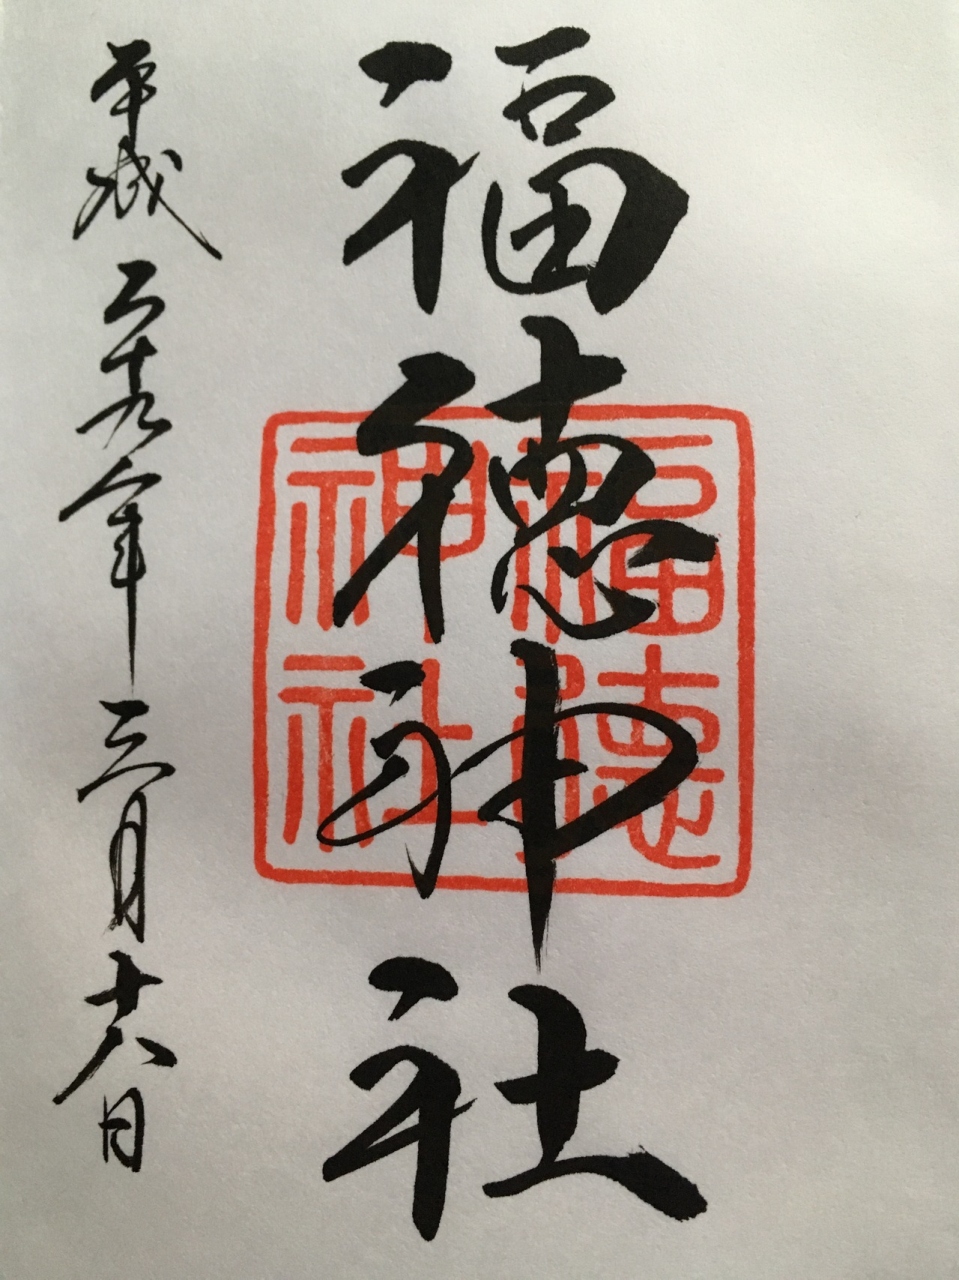 福徳神社
福徳
神社
平成二十九年三月十八日